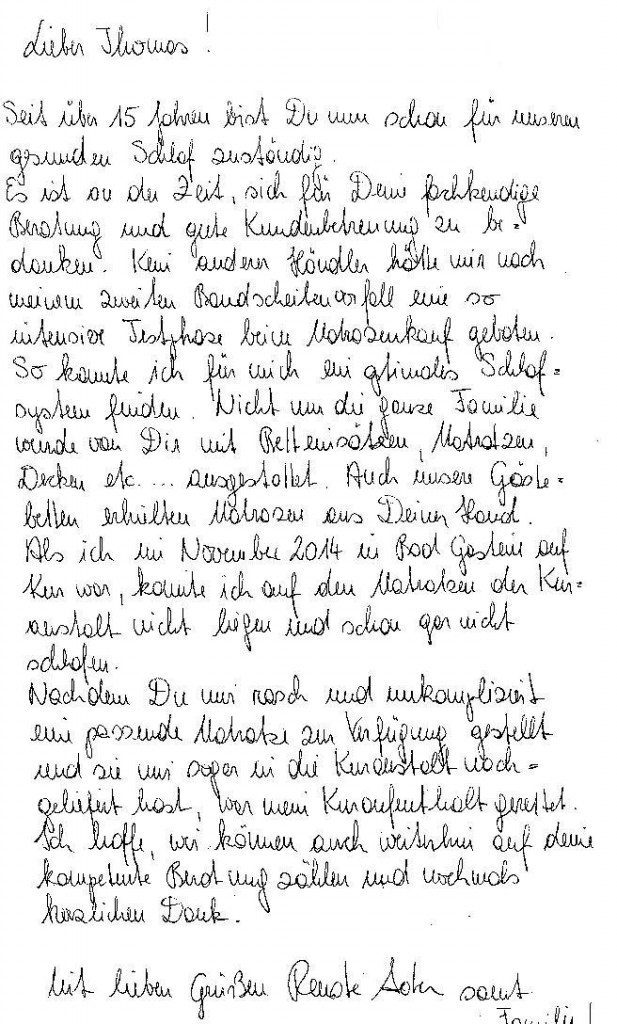 Lieber Thomas!
Seit über 15 Jahren bist Du nun schon für unseren
gesunden Schlaf zuständig.
Es ist an der Zeit, sich für Deine fachkundige
Beratung und gute Kundenbetreuung zu be=
danken. Kein anderer Händler hätte mir nach
meinem zweiten Bandscheibenvorfall eine so
intensive Testphase beim Matrazenkauf geboten.
So konnte ich für mich ein optimales Schlaf=
system finden. Nicht nur die ganze Familie
wurde von Dir mit Betteinsätzen, Matratzen,
Decken etc.... ausgestattet. Auch unsere Gäste=
betten erhielten Matrazen aus Deiner Hand.
Als ich im November 2014 in Bad Gastein auf
Kur war, konnte ich auf den Matratzen der Kur=
anstalt nicht liegen und schon gar nicht
schlafen.
Nachdem Du mir rasch und unkompliziert
eine passende Matratze zur Verfügung gestellt
und sie mir sogar in die Kuranstalt nach=
geliefert hast, war mein Kuraufenthalt gerettet.
Ich hoffe, wir können auch weiterhin auf deine
kompetente Beratung zählen und nochmals
herzlichen Dank.
Mit lieben Grüßen Renate samt
Familie!